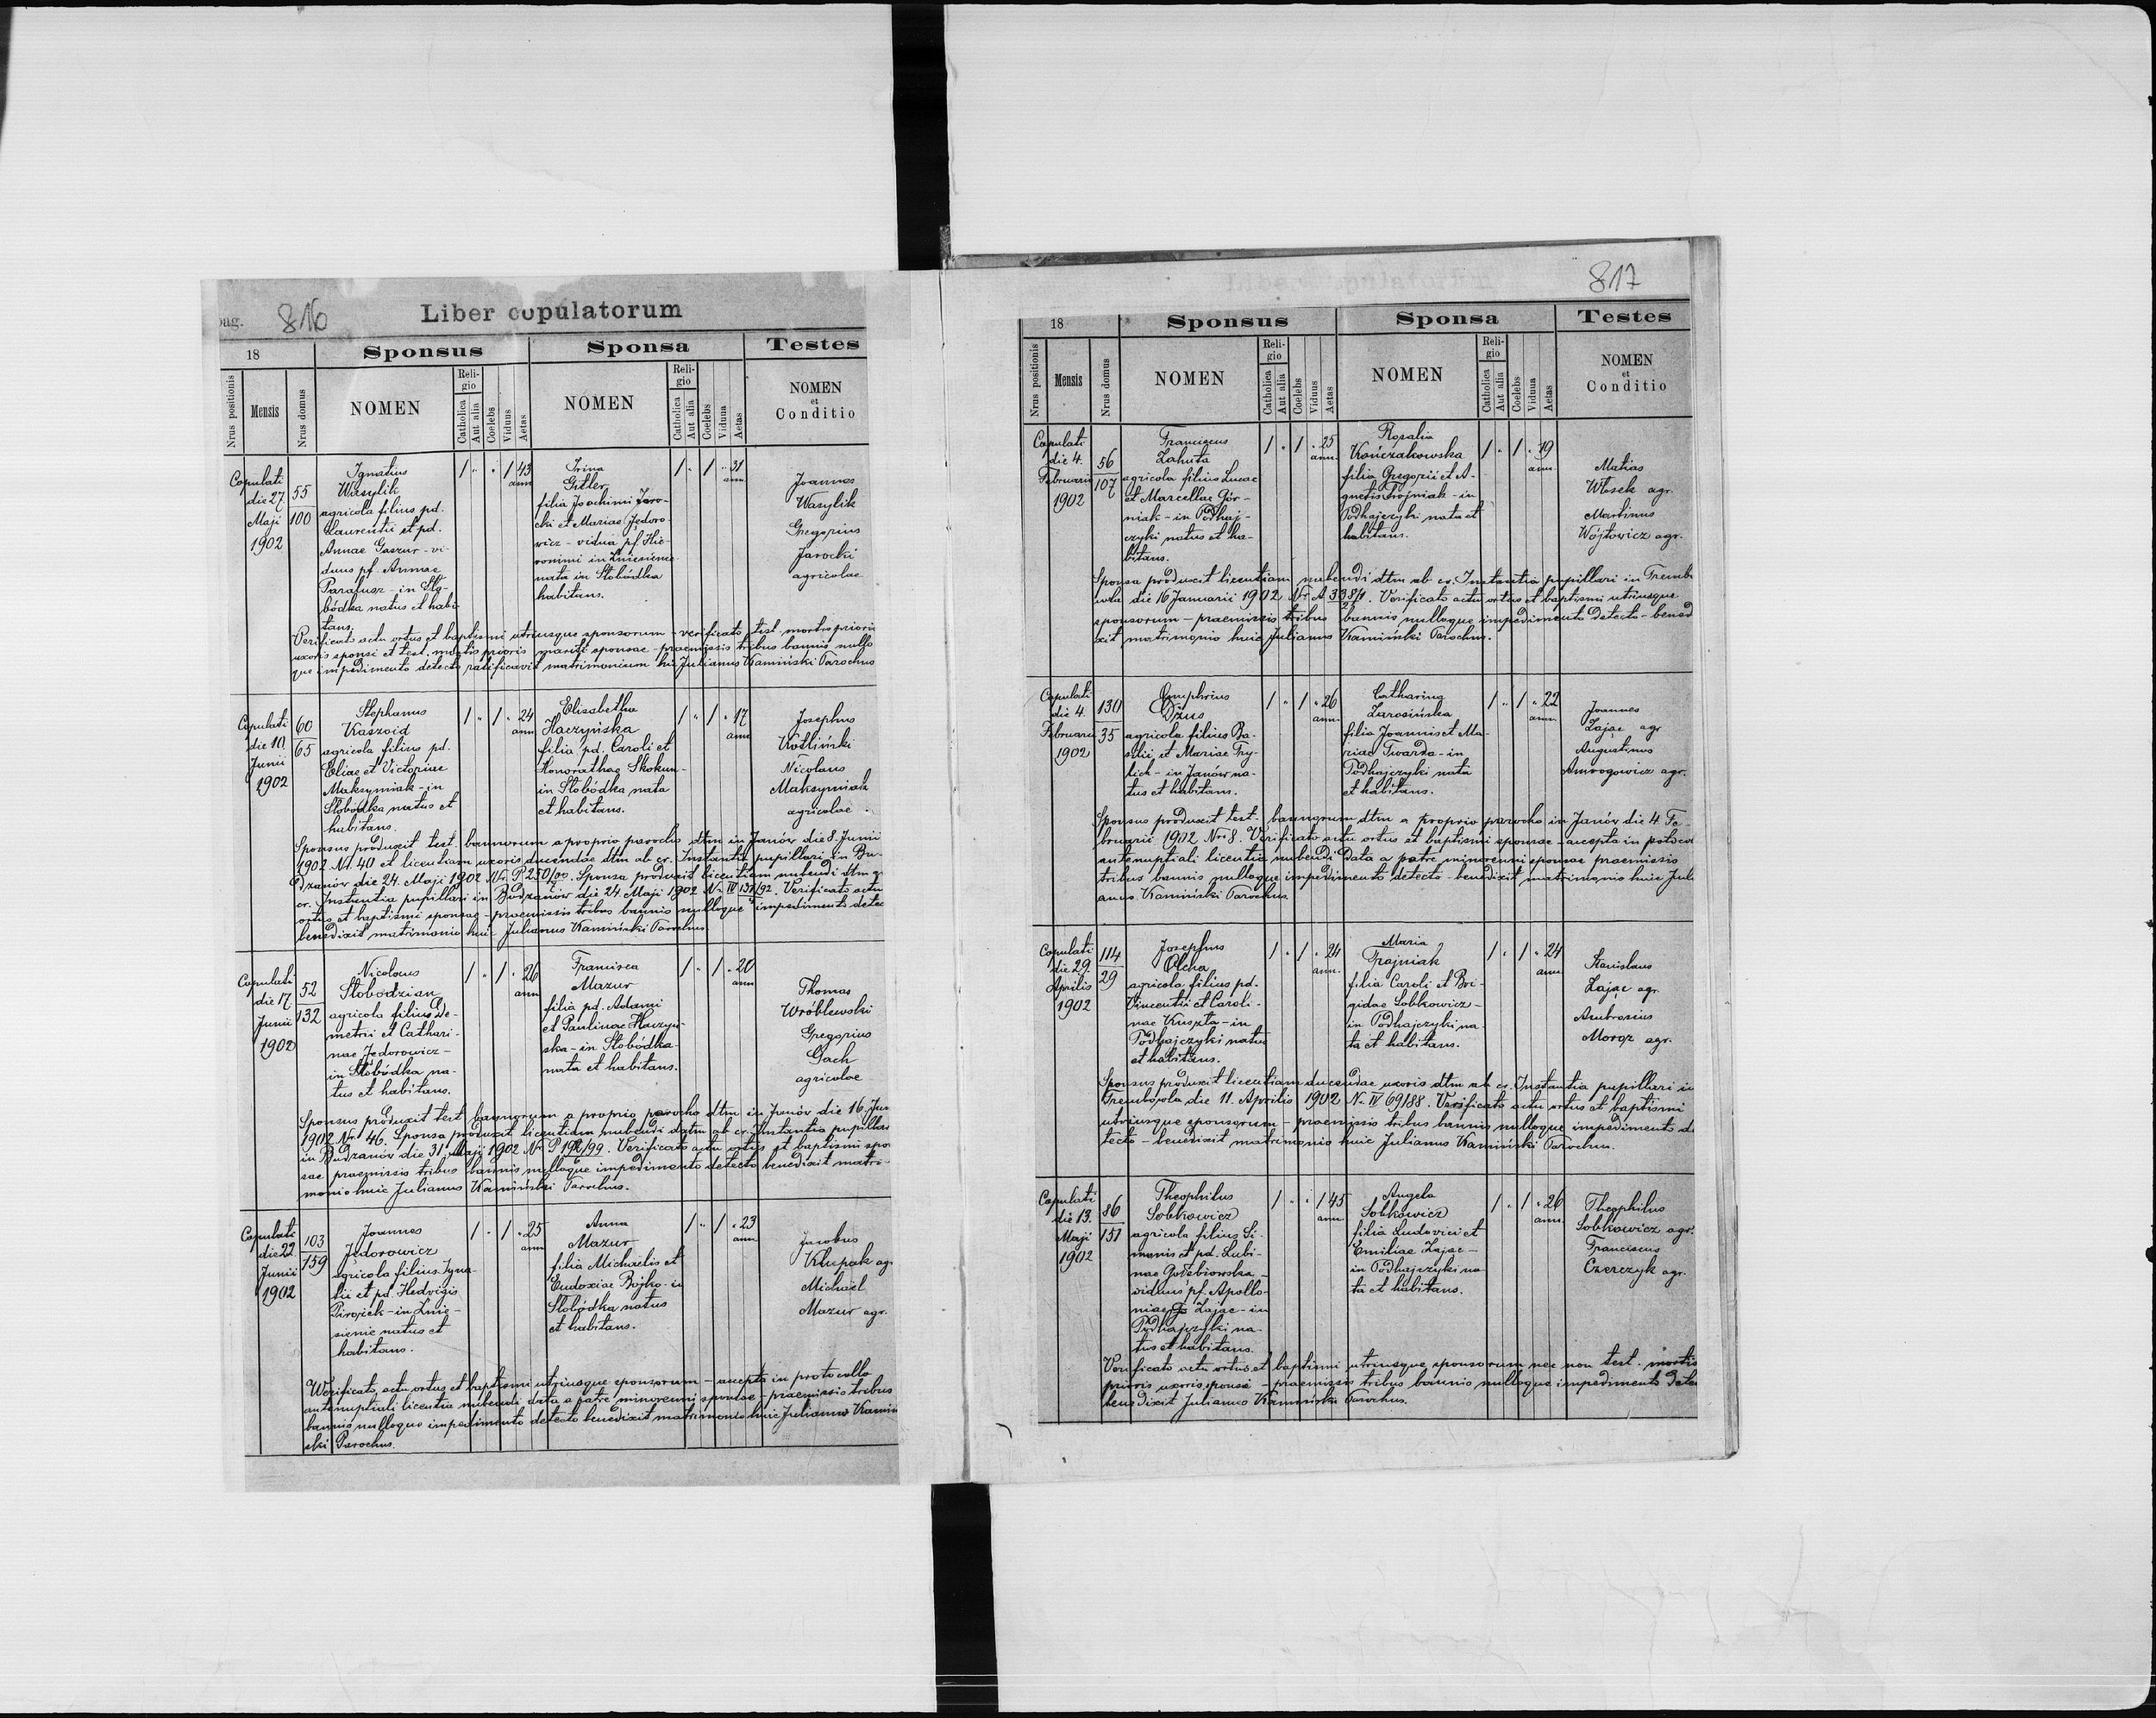 pag. 816
Liber copulatorum
18
Sponsus
Sponsa
Testes
Nrus positionis
Mensis
Nrus domus
NOMEN
Religio
Catholica
Aut alia
Coelebs
Viduus
Aetas
NOMEN
Religio
Catholica
Aut alia
Coelebs
Vidua
Aetas
NOMEN
et
Conditio
Copulati
die 27
Maji
1902
55
100
Ignatius
Wasylik
agricola filius pd.
Laurentii et pd.
Annae Gaszur - vi-
duus pf. Annae
Parafusz - in Sło-
bódka natus et habi-
tans.
1 " " 1 43
ann
Irina
Gitler
filia Joachimi Jaro-
cki et Mariae Jędoro-
wicz - vidua pf. Hie-
ronimi in Zniesienie
nata in Słobódka
habitans.
1 " 1 " 31
ann
Joannes
Wasylik
Gregorius
Jarocki
agricolae
Verificato actu ortus et baptismi utriusque sponsorum - verificato test. mortis prioris
uxoris sponsi et test. mortis prioris mariti sponsae - praemissis tribus bannis nullo
que impedimento detecto ratificavit matrimonium hic Julianus Kamiński Parochus
Copulati
die 10.
Junii
1902
60
65
Stephanus
Kaszoid
agricola filius pd.
Eliae et Victoriae
Maksymiak - in
Słobódka natus et
habitans.
1 " 1 " 24
ann
Elisabetha
Haczyńska
filia pd. Caroli et
Honorathae Skokun-
in Słobódka nata
et habitans.
1 " 1 " 17
ann
Josephus
Kośliński
Nicolaus
Maksymiak
agricolae
Sponsus produxit test. bannorum a proprio parocho dtm in Janów die 8. Junii
1902 N. 40 et licentiam uxoris ducendae dtm ab cr. Instantia pupillari in Bu-
dzanów die 24. Maji 1902 Nr. P 250/00. Sponsa produxit licentiam nubendi dtm a
cr. Instantia pupillari in Budzanów die 24 Maji 1902 Nr. IV 132/92. Verificato actu
ortus et baptismi sponsae - praemissis tribus bannis nulloque impedimento detec
benedixit matrimonio huic Julianus Kamiński Parochus
Copulati
die 17.
Junii
1902
52
132
Nicolaus
Słobodzian
agricola filius De-
metri et Cathari-
nae Jedorowicz -
in Słobódka na-
tus et habitans.
1 " 1 " 26
ann
Francisca
Mazur
filia pd. Adami
et Paulinae Haczyń-
ska - in Słobódka
nata et habitans.
1 " 1 " 20
ann
Thomas
Wróblewski
Gregorius
Gach
agricolae
Sponsus produxit test. bannorum a proprio parocho dtm in Janów die 16. Jun
1902 Nr. 46. Sponsa produxit licentiam nubendi datm ab cr. Instantia pupillari
in Budzanów die 31. Maji 1902 Nr. P 192/99. Verificato actu ortus et baptismi spon
sae praemissis tribus bannis nulloque impedimento detecto benedixit matri-
monio huic Julianus Kamiński Parochus.
Copulati
die 22.
Junii
1902
103
159
Joannes
Jedorowicz
agricola filius Igna-
tii et pd. Hedvigis
Pirożek - in Znie-
sienie natus et
habitans.
1 " 1 " 25
ann
Anna
Mazur
filia Michaelis et
Eudoxiae Bojko - in
Słobódka natus
et habitans.
1 " 1 " 23
ann
Jacobus
Klupak ag
Michaël
Mazur agr.
Werificato actu ortus et baptismi utriusque sponsorum - accepta in protocollo
antenuptiali licentia nubendi data a patre minorenni sponsae - praemissis tribus
bannis nulloque impedimento detecto benedixit matrimonio huic Julianus Kamiń
ski Parochus.
817
18
Sponsus
Sponsa
Testes
Nrus positionis
Mensis
Nrus domus
NOMEN
Religio
Catholica
Aut alia
Coelebs
Viduus
Aetas
NOMEN
Religio
Catholica
Aut alia
Coelebs
Vidua
Aetas
NOMEN
et
Conditio
Copulati
die 4.
Februarii
1902
56
107
Franciscus
Zahuta
agricola filius Lucae
et Marcellae Gór-
niak - in Podhaj-
czyki natus et ha-
bitans.
1 " 1 " 25
ann.
Rosalia
Kończakowska
filia Gregorii et A-
gnetis Trojniak - in
Podhajczyki nata et
habitans.
1 " 1 " 19
ann
Matias
Włosek agr.
Martinus
Wójtowicz agr.
Sponsa produxit licentiam nubendi dtm ab cr. Instantia pupillari in Trembo
wola die 16 Januarii 1902 Nr. A 338/1. Verificato actu ortus et baptismi utriusque
sponsorum - praemissis tribus bannis nulloque impedimento detecto - bened
ixit matrimonio huic Julianus Kamiński Parochus.
Copulati
die 4.
Februarii
1902
130
35
Onuphrius
Dżus
agricola filius Ba-
silii et Mariae Try-
lich - in Janów na-
tus et habitans.
1 " 1 " 26
ann.
Catharina
Zarosińska
filia Joannis et Ma-
riae Twarda - in
Podhajczyki nata
et habitans.
1 " 1 " 22
ann
Joannes
Zając agr
Augustinus
Amrogowicz agr.
Sponsus produxit test. bannorum dtm a proprio parocho in Janów die 4. Fe-
bruarii 1902 Nr. 8. Verificato actu ortus et baptismi sponsae - accepta in potocol
antenuptiali licentia nubendi data a patre minorenni sponsae praemissis
tribus bannis nulloque impedimento detecto - benedixit matrimonio huic Juli
anus Kamiński Parochus
Copulati
die 29.
Aprilis
1902
114
29
Josephus
Olcha
agricola filius pd.
Vincentii et Caroli-
nae Kuszta - in
Podhajczyki natus
et habitans.
1 " 1 " 24
ann.
Maria
Trajniak
filia Caroli et Bri-
gidae Sobkowicz -
in Podhajczyki na-
ta et habitans.
1 " 1 " 24
ann
Stanislaus
Zając agr.
Ambrosius
Moroz agr.
Sponsus produxit licentiam ducendae uxoris dtm ab cr. Instantia pupillari in
Trembowola die 11. Aprilis 1902 N. IV 69/88. Verificato actu ortus et baptismi
utriusque sponsorum - praemissis tribus bannis nulloque impedimento de
tecto - benedixit matrimonio huic Julianus Kamiński Parochus.
Copulati
die 13.
Maji
1902
86
151
Theophilus
Sobkowicz
agricola filius Si-
monis et pd. Lubi-
nae Gołebiowska -
viduus pf. Apollo-
niae Zając - in
Podhajczyki na-
tus et habitans.
1 " " 1 45
ann.
Angela
Sobkowicz
filia Ludovici et
Emiliae Zając -
in Podhajczyki na-
ta et habitans.
1 " 1 " 26
ann.
Theophilus
Sobkowicz agr.
Franciscus
Czerczyk agr.
Verificato actu ortus et baptismi utriusque sponsorum nec non test. mortis
prioris uxoris sponsi - praemissis tribus bannis nulloque impedimento detec
benedixit Julianus Kamiński Parochus.